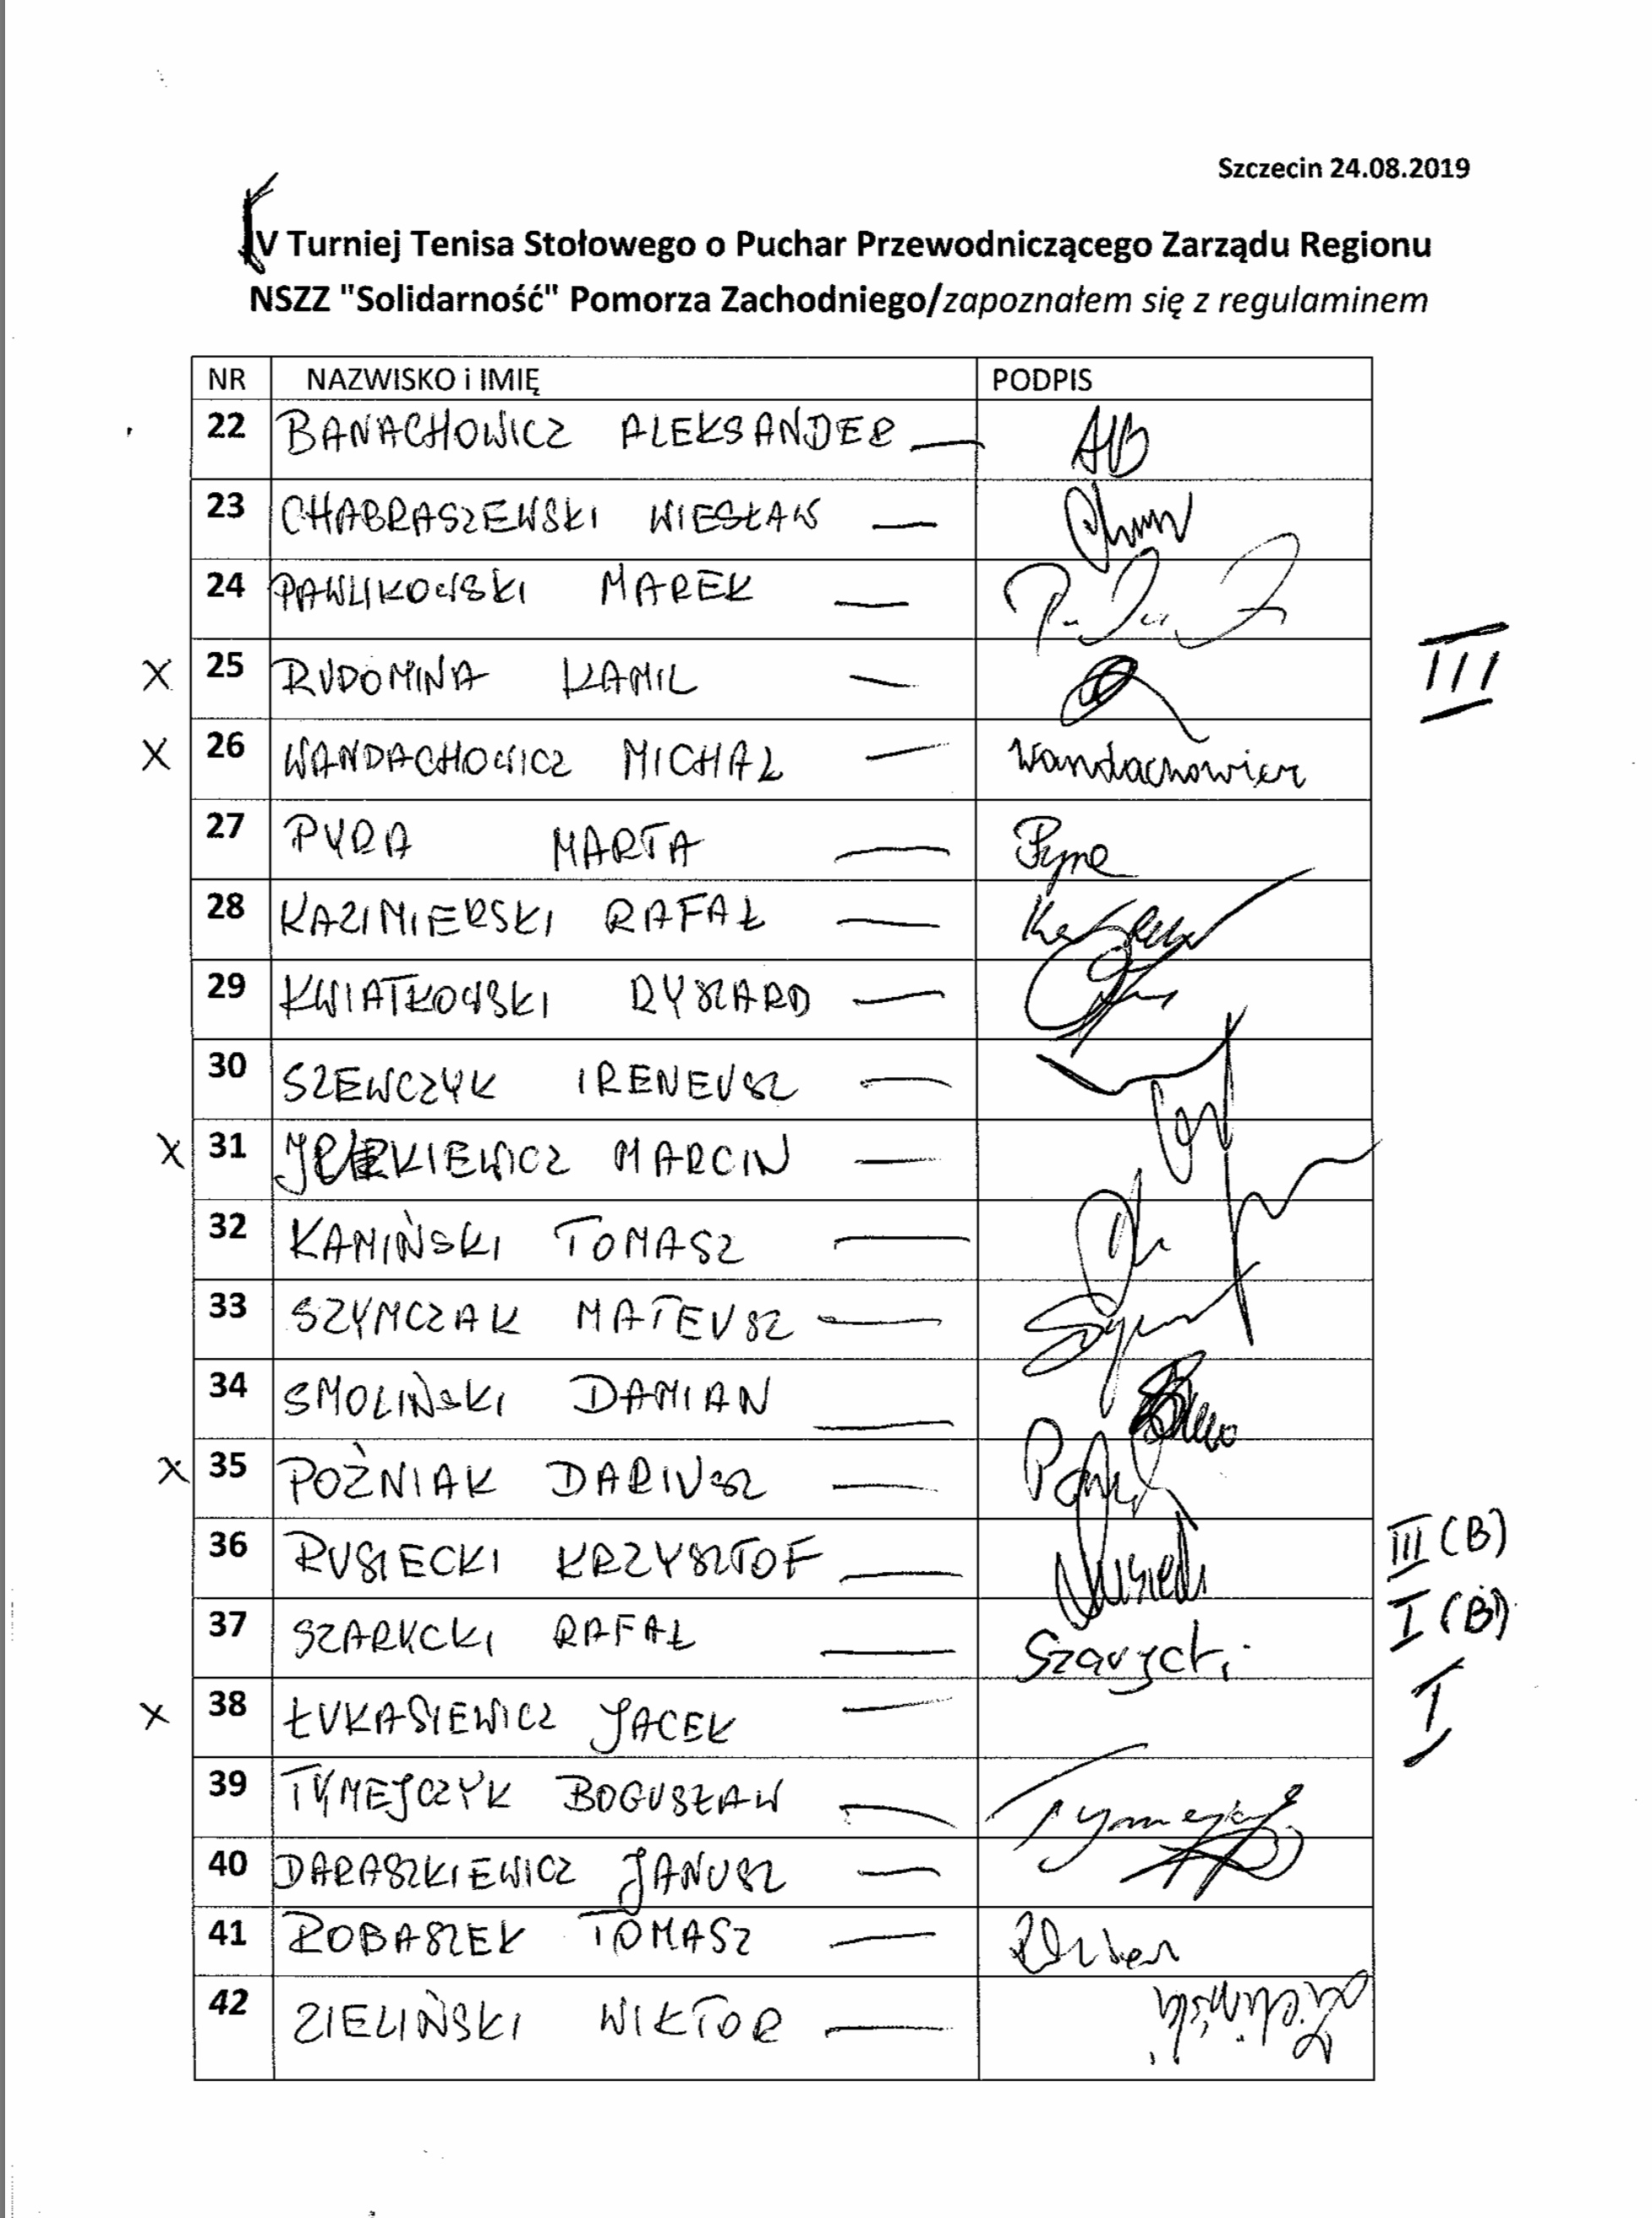 Szczecin 24.08.2019
V Turniej Tenisa Stołowego o Puchar Przewodniczącego Zarządu Regionu
NSZZ "Solidarność" Pomorza Zachodniego/zapoznałem się z regulaminem
NR NAZWISKO i IMIĘ PODPIS
22 BANACHOWICZ ALEKSANDER — AB
23 CHABRASZEWSKI WIESŁAW —
24 PAWLIKOWSKI MAREK —
X 25 RUDOMINA KAMIL — III
X 26 WANDACHOWICZ MICHAŁ — Wandachowicz
27 PYRA MARTA — Pyra
28 KAZIMIERSKI RAFAŁ —
29 KWIATKOWSKI RYSZARD —
30 SZEWCZYK IRENEUSZ —
X 31 MARCIN —
32 KAMIŃSKI TOMASZ —
33 SZYMCZAK MATEUSZ —
34 SMOLIŃSKI DAMIAN —
X 35 POŹNIAK DARIUSZ —
36 RUSIECKI KRZYSZTOF — III (B)
37 SZARYCKI RAFAŁ — Szarycki I (B)
X 38 ŁUKASIEWICZ JACEK — I
39 TYMEJCZYK BOGUSŁAW —
40 DARASZKIEWICZ JANUSZ —
41 ROBASZEK TOMASZ —
42 ZIELIŃSKI WIKTOR — Zieliński